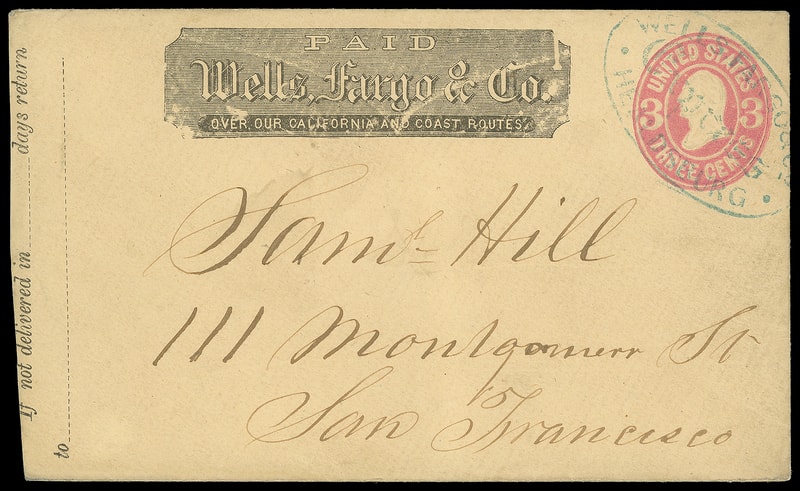 PAID
Wells, Fargo & Co.
OVER OUR CALIFORNIA AND COAST ROUTES.
UNITED STATES
3 3
THREE CENTS
WELLS FAR
Saml Hill
111 Montgomerr St
San Francisco
If not delivered in ______ days return
to